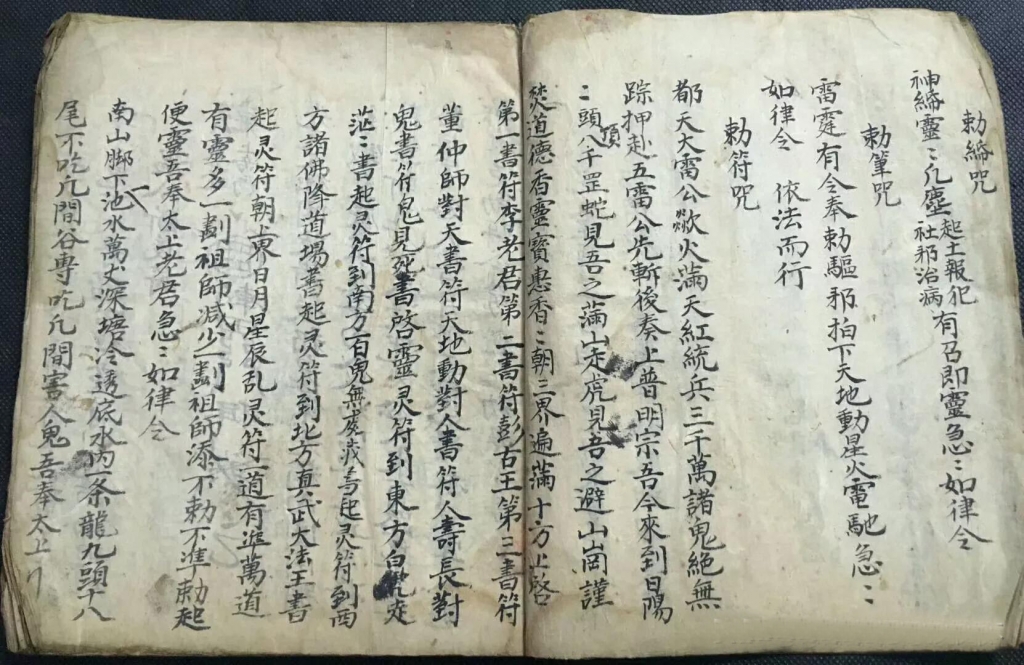 勅締咒
神締靈：凢塵起土報犯社邪治病有召即靈急：如律令
勅筆咒
雷霆有令奉勅驅邪拍下天地動星火電馳急：
如律令 依法而行
勅符咒
都天天雷公歘火滿天紅統兵三千萬諸鬼絕無
踪押赴五雷公先斬後奏上普明宗吾今來到日陽
：頭頂八千罡蛇見吾之滿山走虎見吾之避山崗謹
焚道德香靈寶惠香：朝三界遍滿十方上啓
第一書符李老君第二書符彭古王第三書符
董仲師對天書符天地動對人書符人壽長對
鬼書符鬼見死書啓靈灵符到東方白鬼走
茫：書起灵符到南方百鬼無處藏書起灵符到西
方諸佛降道塲書起灵符到北方真武大法王書
起灵符朝上界日月星辰乱灵符一道有進萬道
有靈多一劃祖師減少一劃祖師添不勅不準勅起
便靈吾奉太上老君急：如律令
南山脚下一池水萬丈深塘冷透底水内一条龍九頭十八
尾不吃凢間谷專吃凢間害人鬼吾奉太上